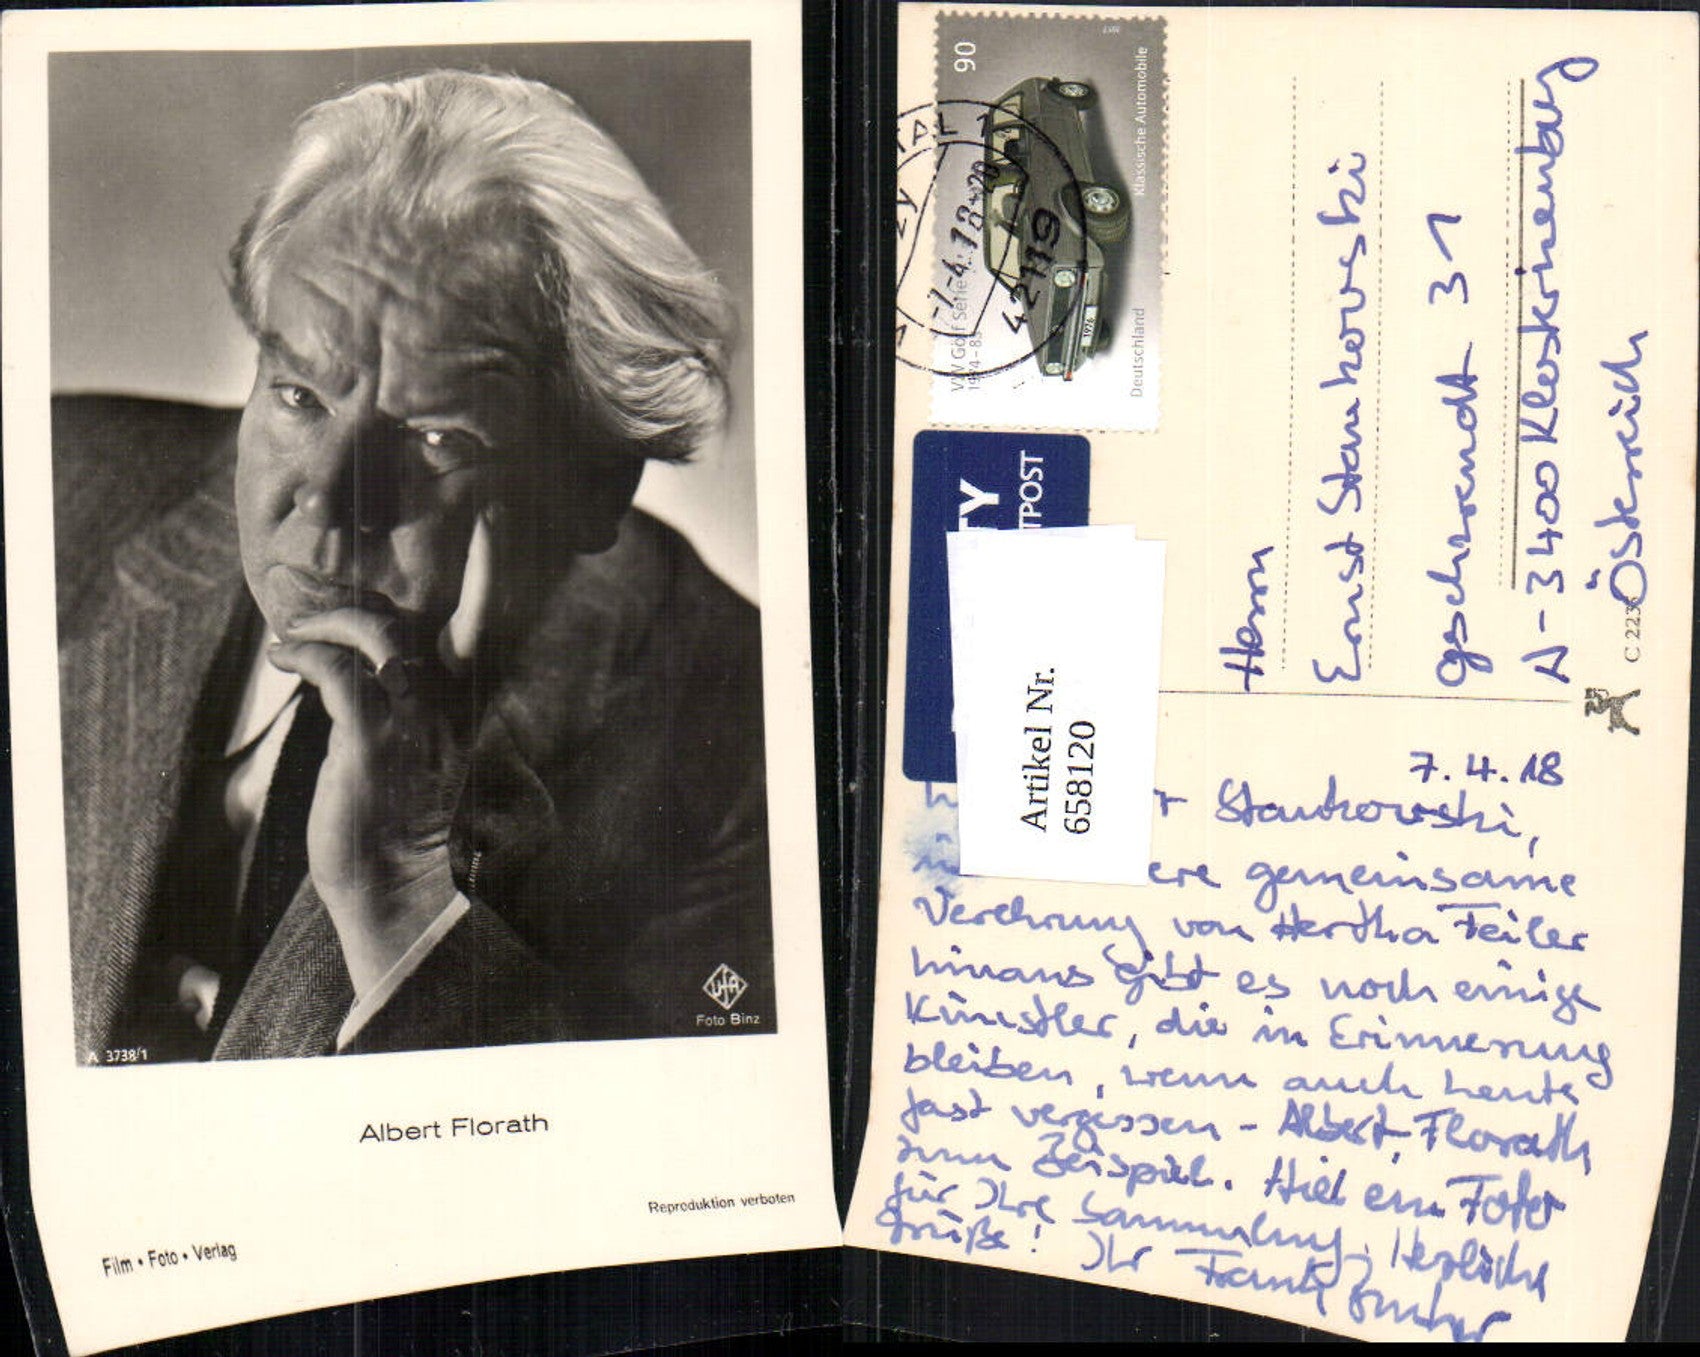 UFA
Foto Binz
A 3738/1
Albert Florath
Reproduktion verboten
Film • Foto • Verlag
90
Klassische Automobile
Deutschland
VW Golf Serie 1
1974-83
1976
-7.-4.18-20
42119
TY
TPOST
Artikel Nr.
658120
Herrn
Ernst Stankovski
Gschwendt 31
A-3400 Klosterneuburg
Österreich
C 223
7.4.18
r Stankovski,
ere gemeinsame
Verehrung von Hertha Feiler
hinaus gibt es noch einige
Künstler, die in Erinnerung
bleiben, wenn auch heute
fast vergessen - Albert Florath
zum Beispiel. Hier ein Foto
für Ihre Sammlung, Herzliche
Grüße! Ihr Frank